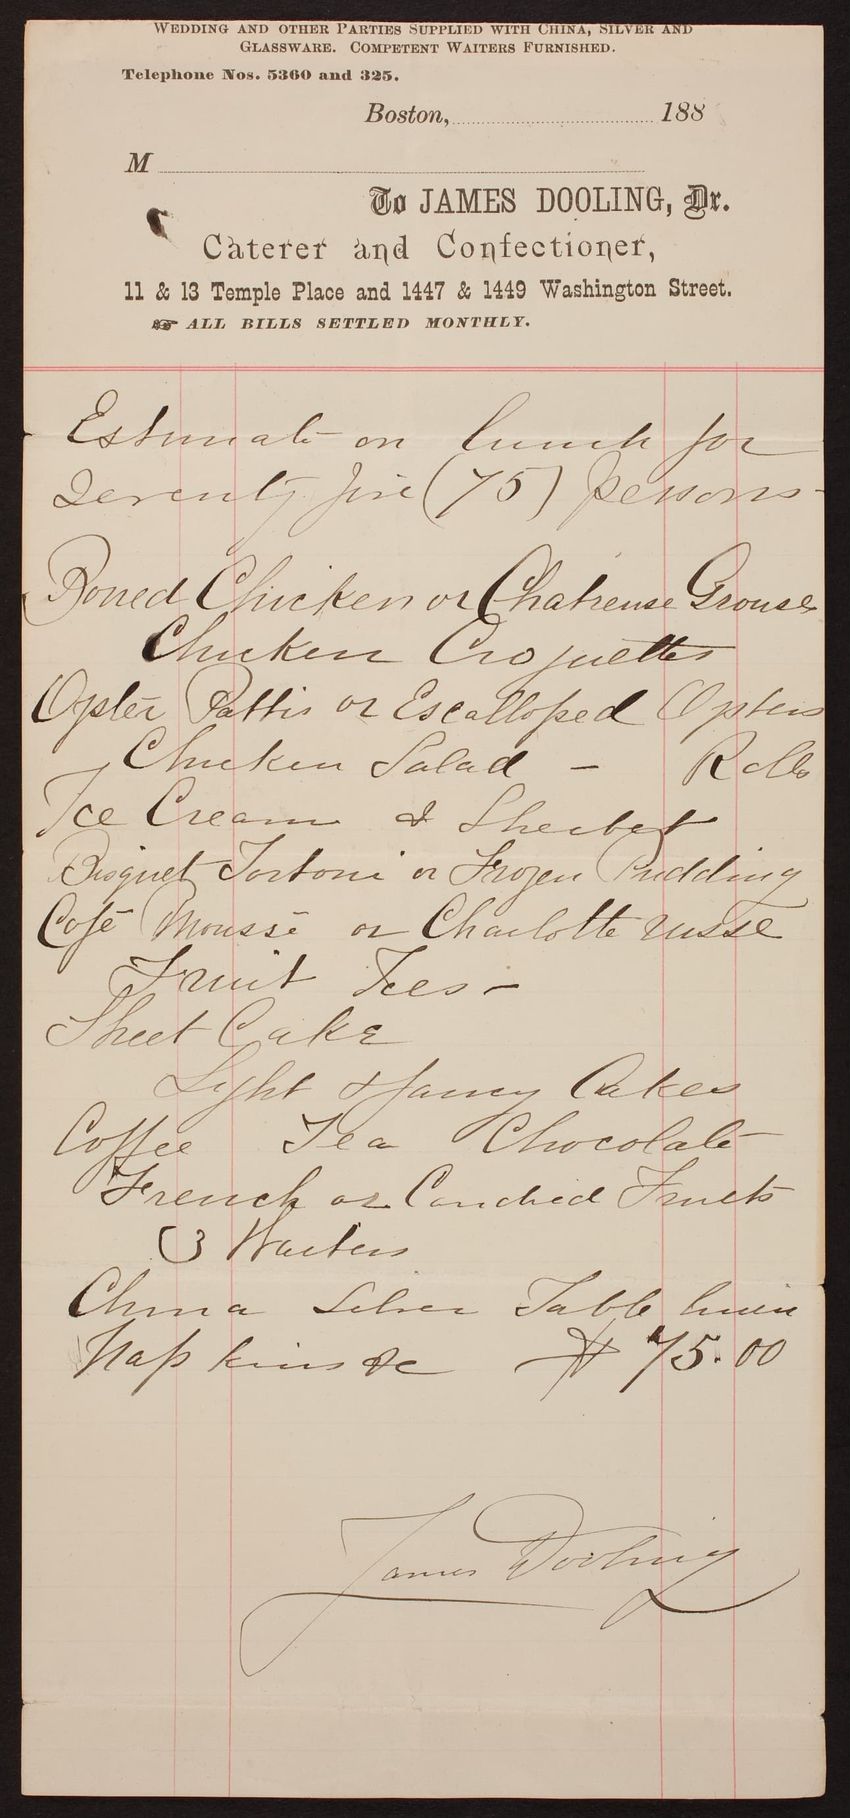 WEDDING AND OTHER PARTIES SUPPLIED WITH CHINA, SILVER AND
GLASSWARE. COMPETENT WAITERS FURNISHED.
Telephone Nos. 5360 and 325.
Boston, 188
M
To JAMES DOOLING, Dr.
Caterer and Confectioner,
11 & 13 Temple Place and 1447 & 1449 Washington Street.
☞ ALL BILLS SETTLED MONTHLY.
Estimate on lunch for
Seventy five (75) persons
Boned Chicken or Chatreuse Grouse
Chicken Croquettes
Oyster Pattis or Escalloped Oysters
Chicken Salad – Rolls
Ice Cream & Sherbet
Bisquet Tortoni or Frozen Pudding
Café Mousse or Charlotte russe
Fruit Ices –
Sheet Cake
Light & fancy Cakes
Coffee Tea Chocolate
French or Candied Fruits
3 Waiters
China Silver Table linen
Napkins &c $75.00
James Dooling